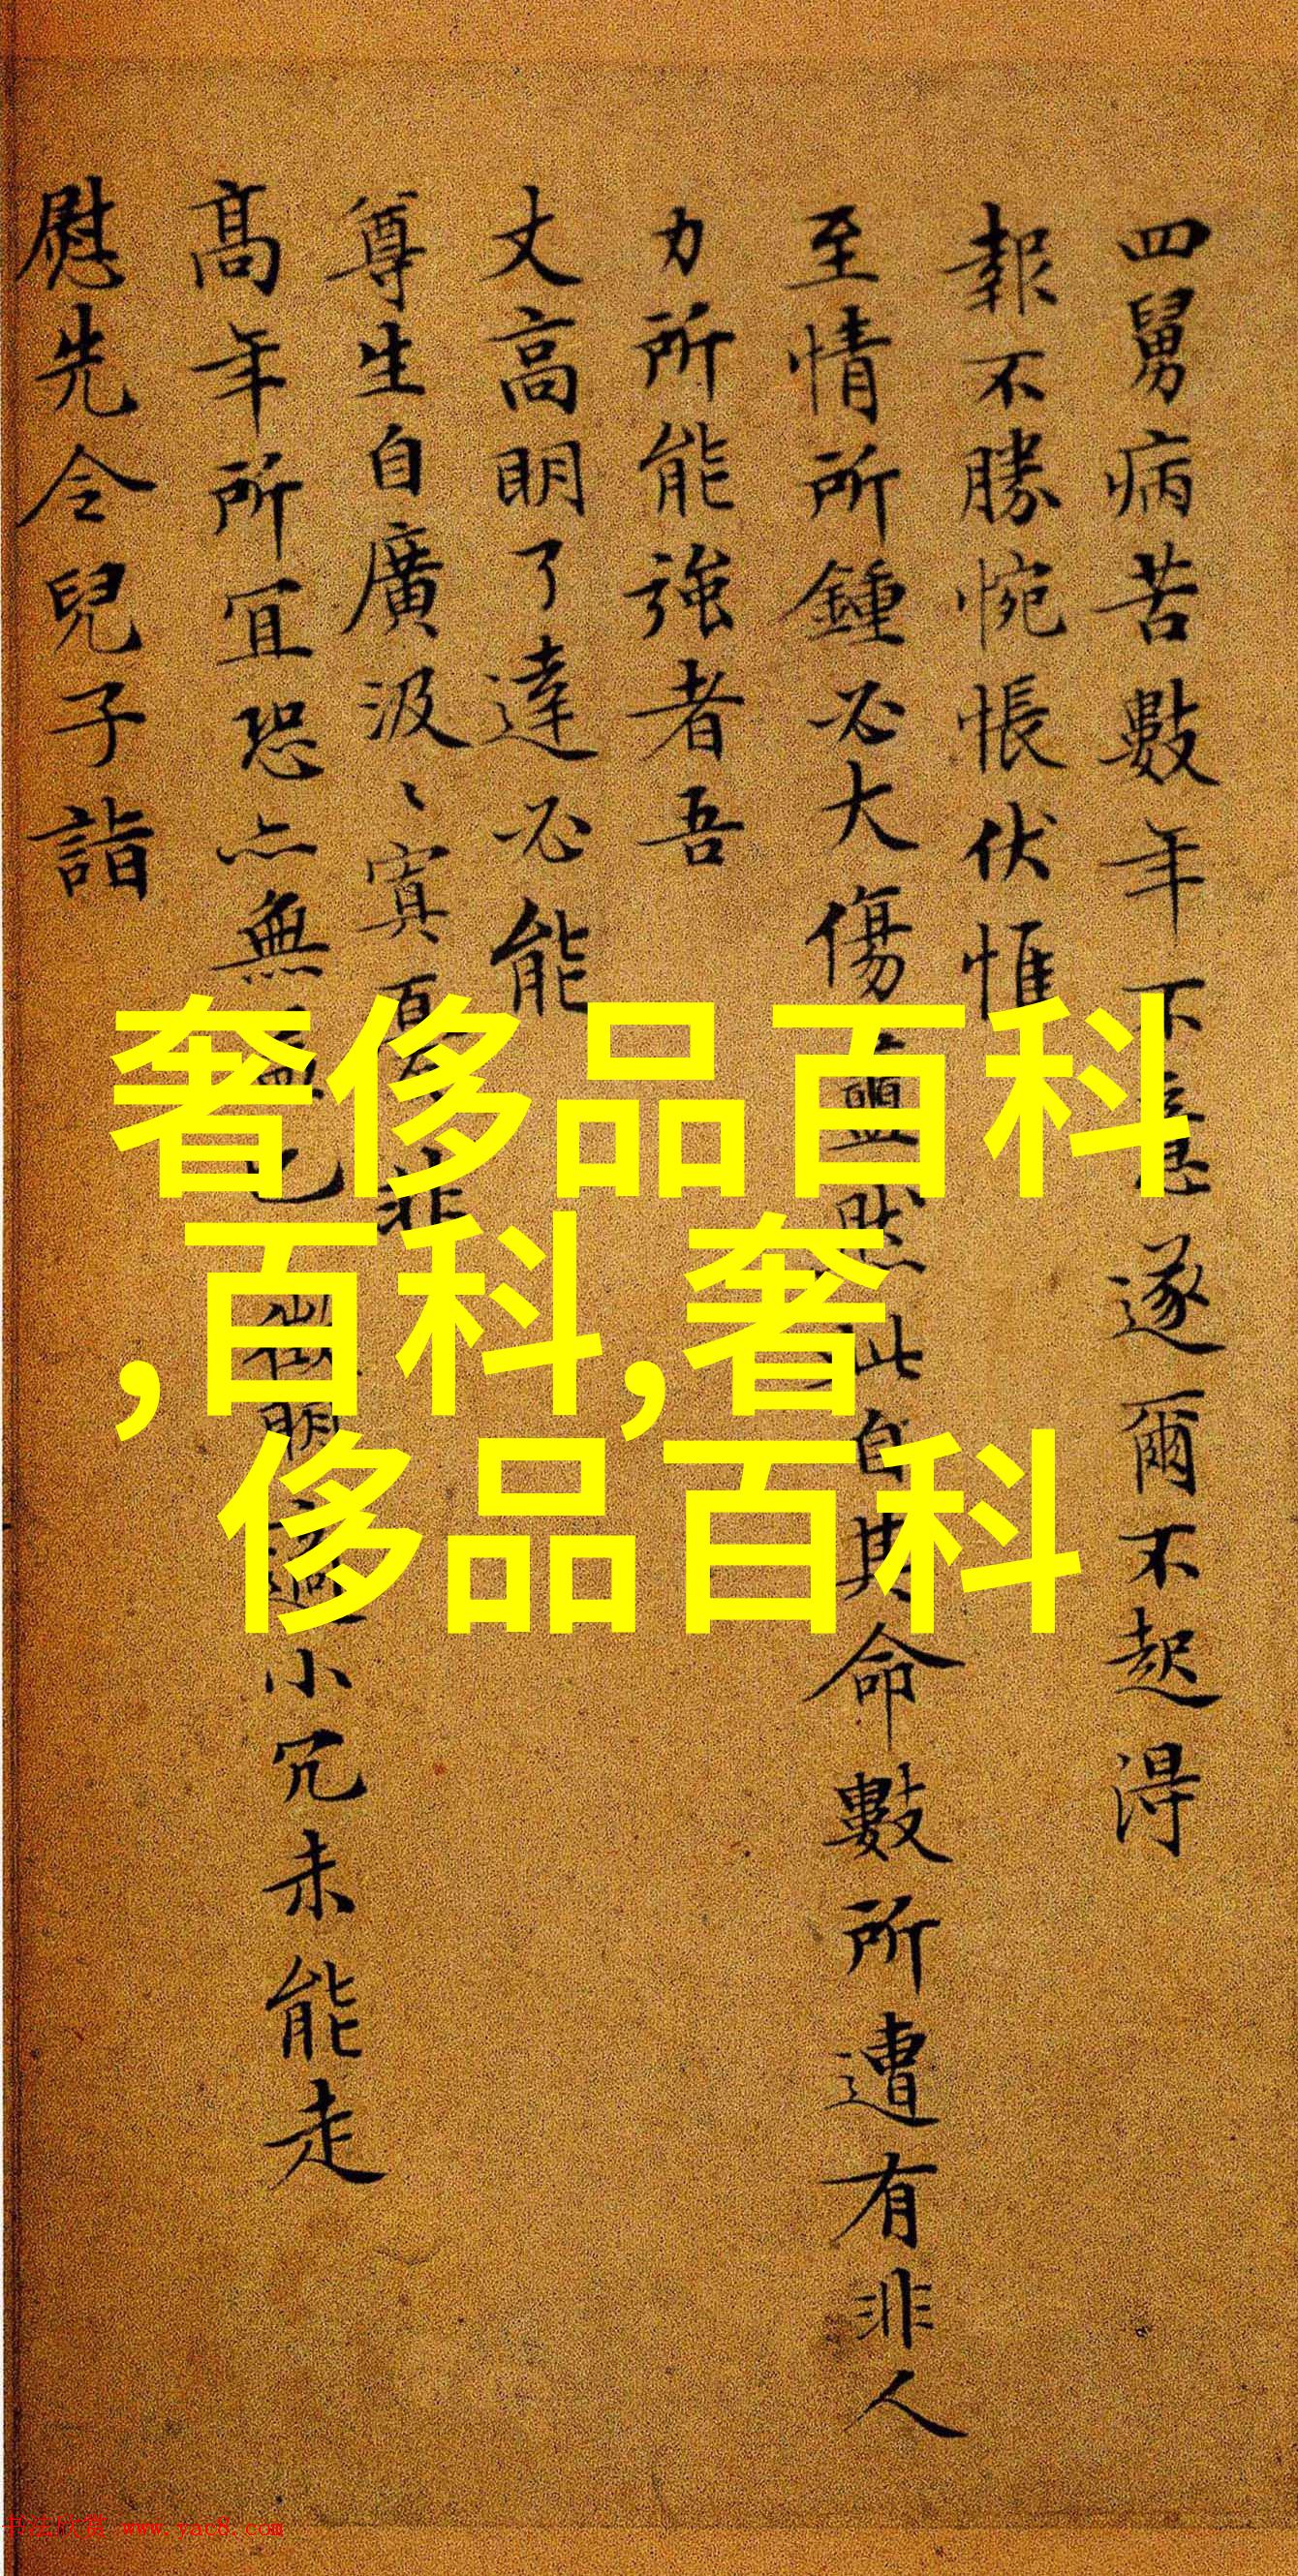 四舅病苦數年不遂爾不起淂
報不勝惋悵伏惟
至情所鍾必大傷然此自其命數所遭有非人
力所能強者吾
丈高明了達必能
尊生自廣汲〻寘非
高年所宜恐亦無已明適小冗未能走
慰先令兒子詣
奢侈品百科
,百科,奢
侈品百科
书法欣赏 www.yac8.com